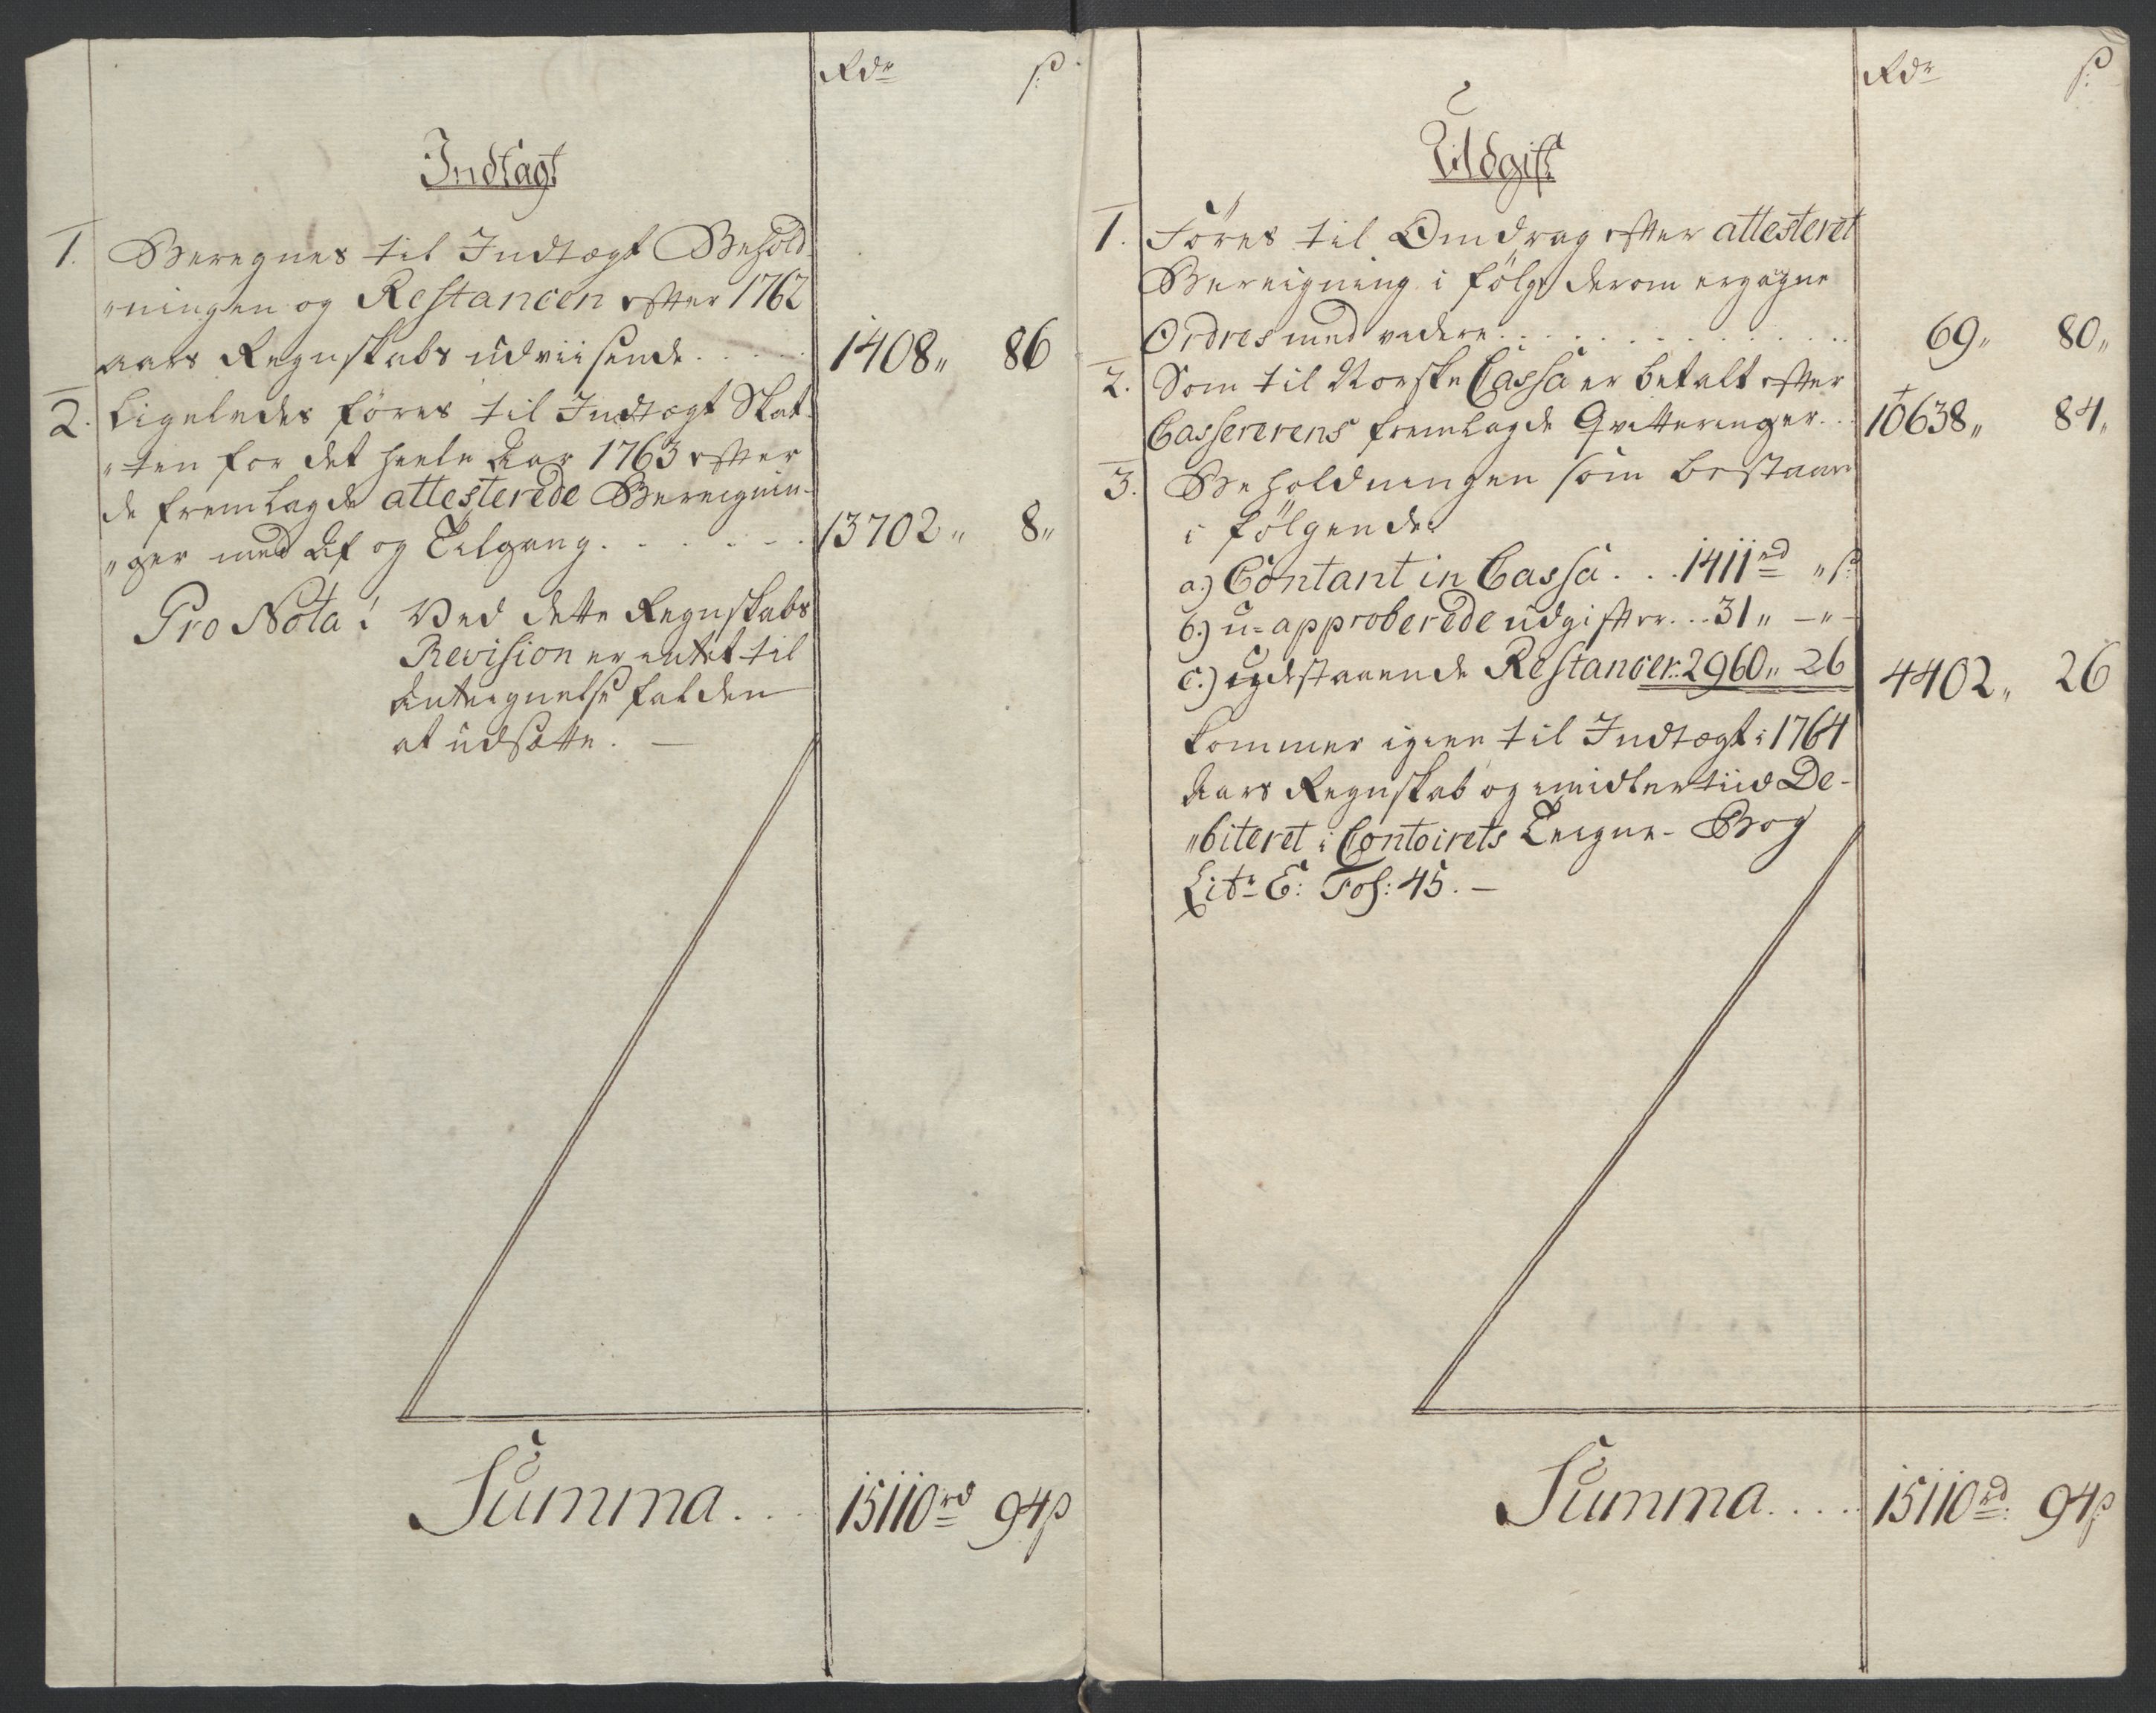 Rdr ß
Indtægt
1. Beregnes til Indtægt Behold-
"ningen og Restancen efter 1762
aars Regnskabs udviisende . . . . . 1408 " 86
2. Ligeledes föres til Indtægt Skat-
"ten for det heele Aar 1763 efter
de fremlagde attesterede Beregnin-
"ger med Af og Tilgang . . . . . . 13702 " 8 "
Pro Nota! Ved dette Regnskabs
Revision er intet til
Antegnelse falden
at udsætte. —
Summa . . . 15110 rd 94 ß
Rdr ß
Udgift
1. Föres til Omdrag efter attesteret
Beregning i fölge derom ergagne
Ordres med videre . . . . . . . . . . 69 " 80 "
2. Som til Norske Cassa er betalt efter
Casserens fremlagde Qvitteringer . . 10638 " 84 "
3. Beholdningen som bestaar
i fölgende
a.) Contant in Cassa . . . 1411 rd " ß
b.) u-approberede udgifter . . . 31 " — " —
c.) udestaaende Restancer: 2960 " 26 4402 " 26
kommer igien til Indtægt i 1764
Aars Regnskab og imidlertiid De-
"biteret i Contoirets Tegne-Bog
Litr E: Fol: 45. —
Summa . . . . 15110 rd 94 ß